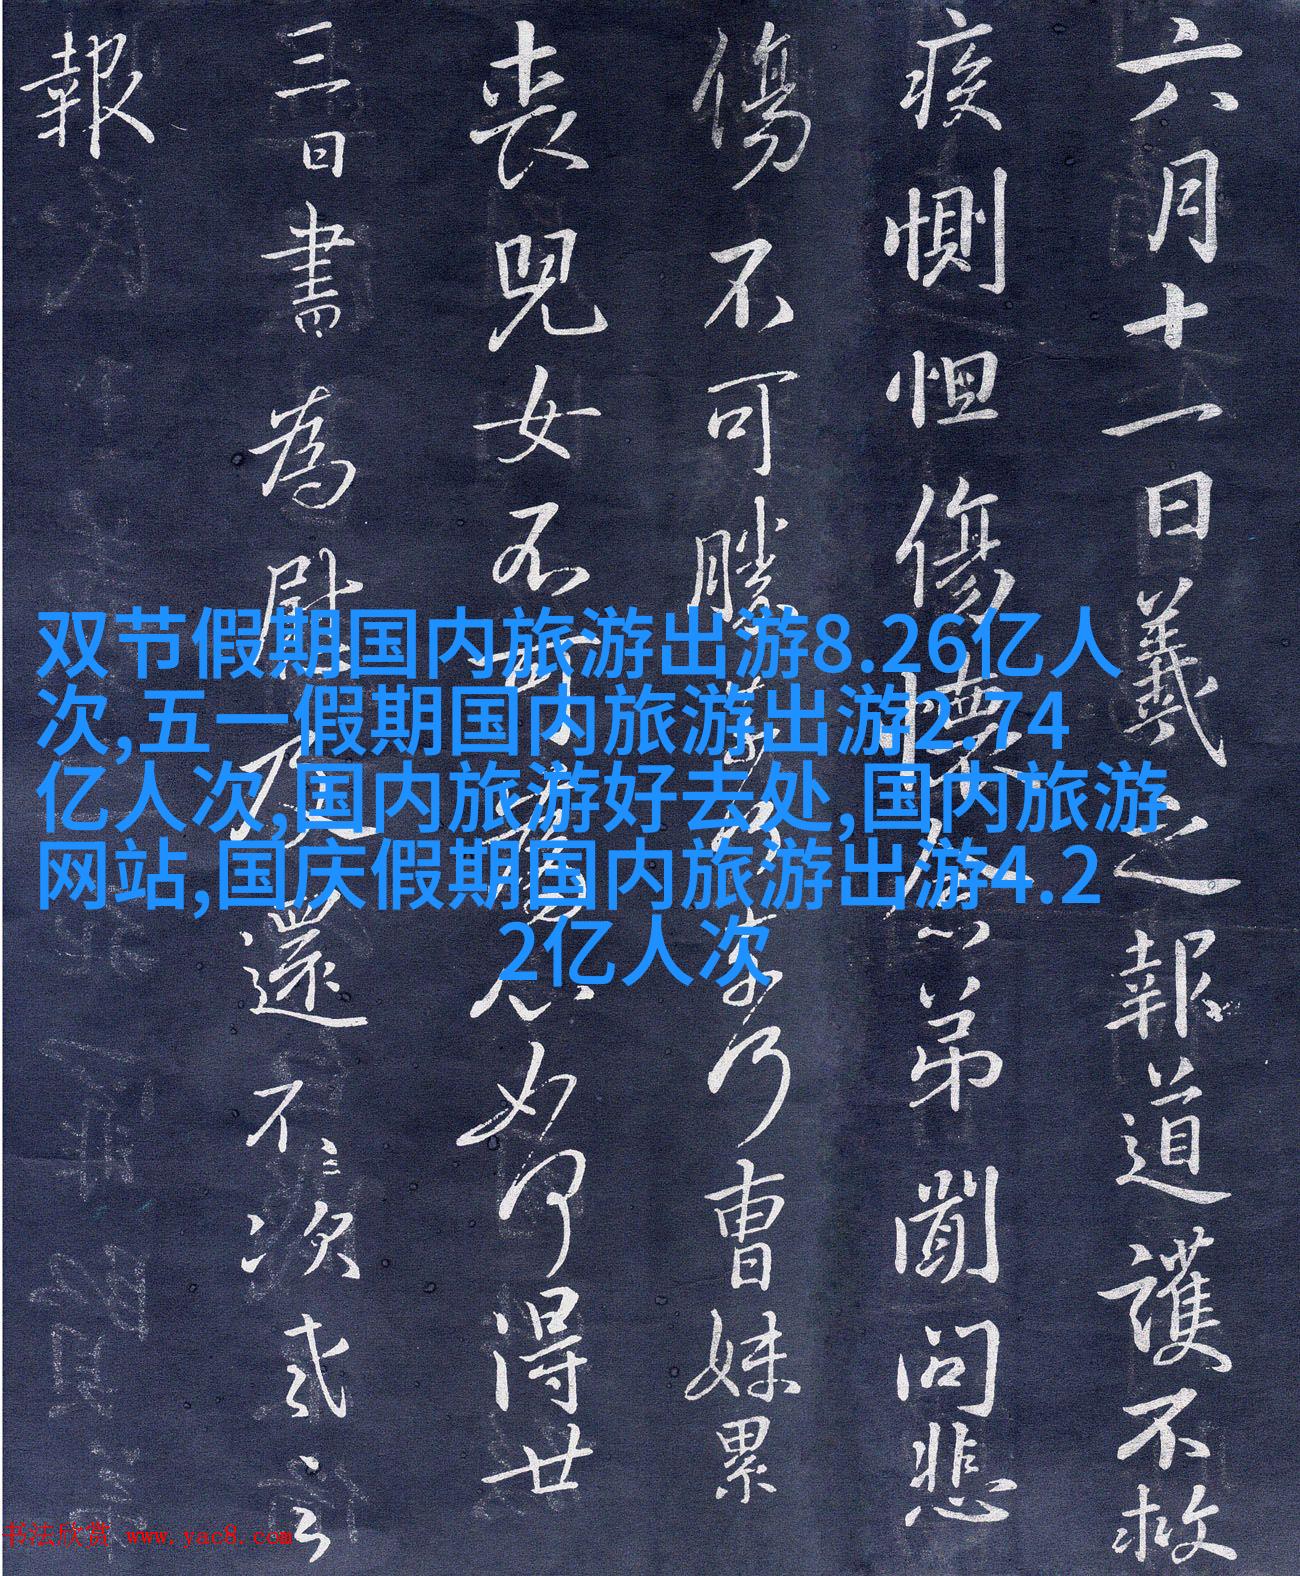 六月十一日羲之報道護不救
疾惻怛傷懷念弟聞問悲
傷不可勝乃曹妹累
喪兒女不可心如何得廿
三日書為慰及還不〻次
報
双节假期国内旅游出游8.26亿人
次,五一假期国内旅游出游2.74
亿人次,国内旅游好去处,国内旅游
网站,国庆假期国内旅游出游4.2
2亿人次
书法欣赏 www.yac8.com